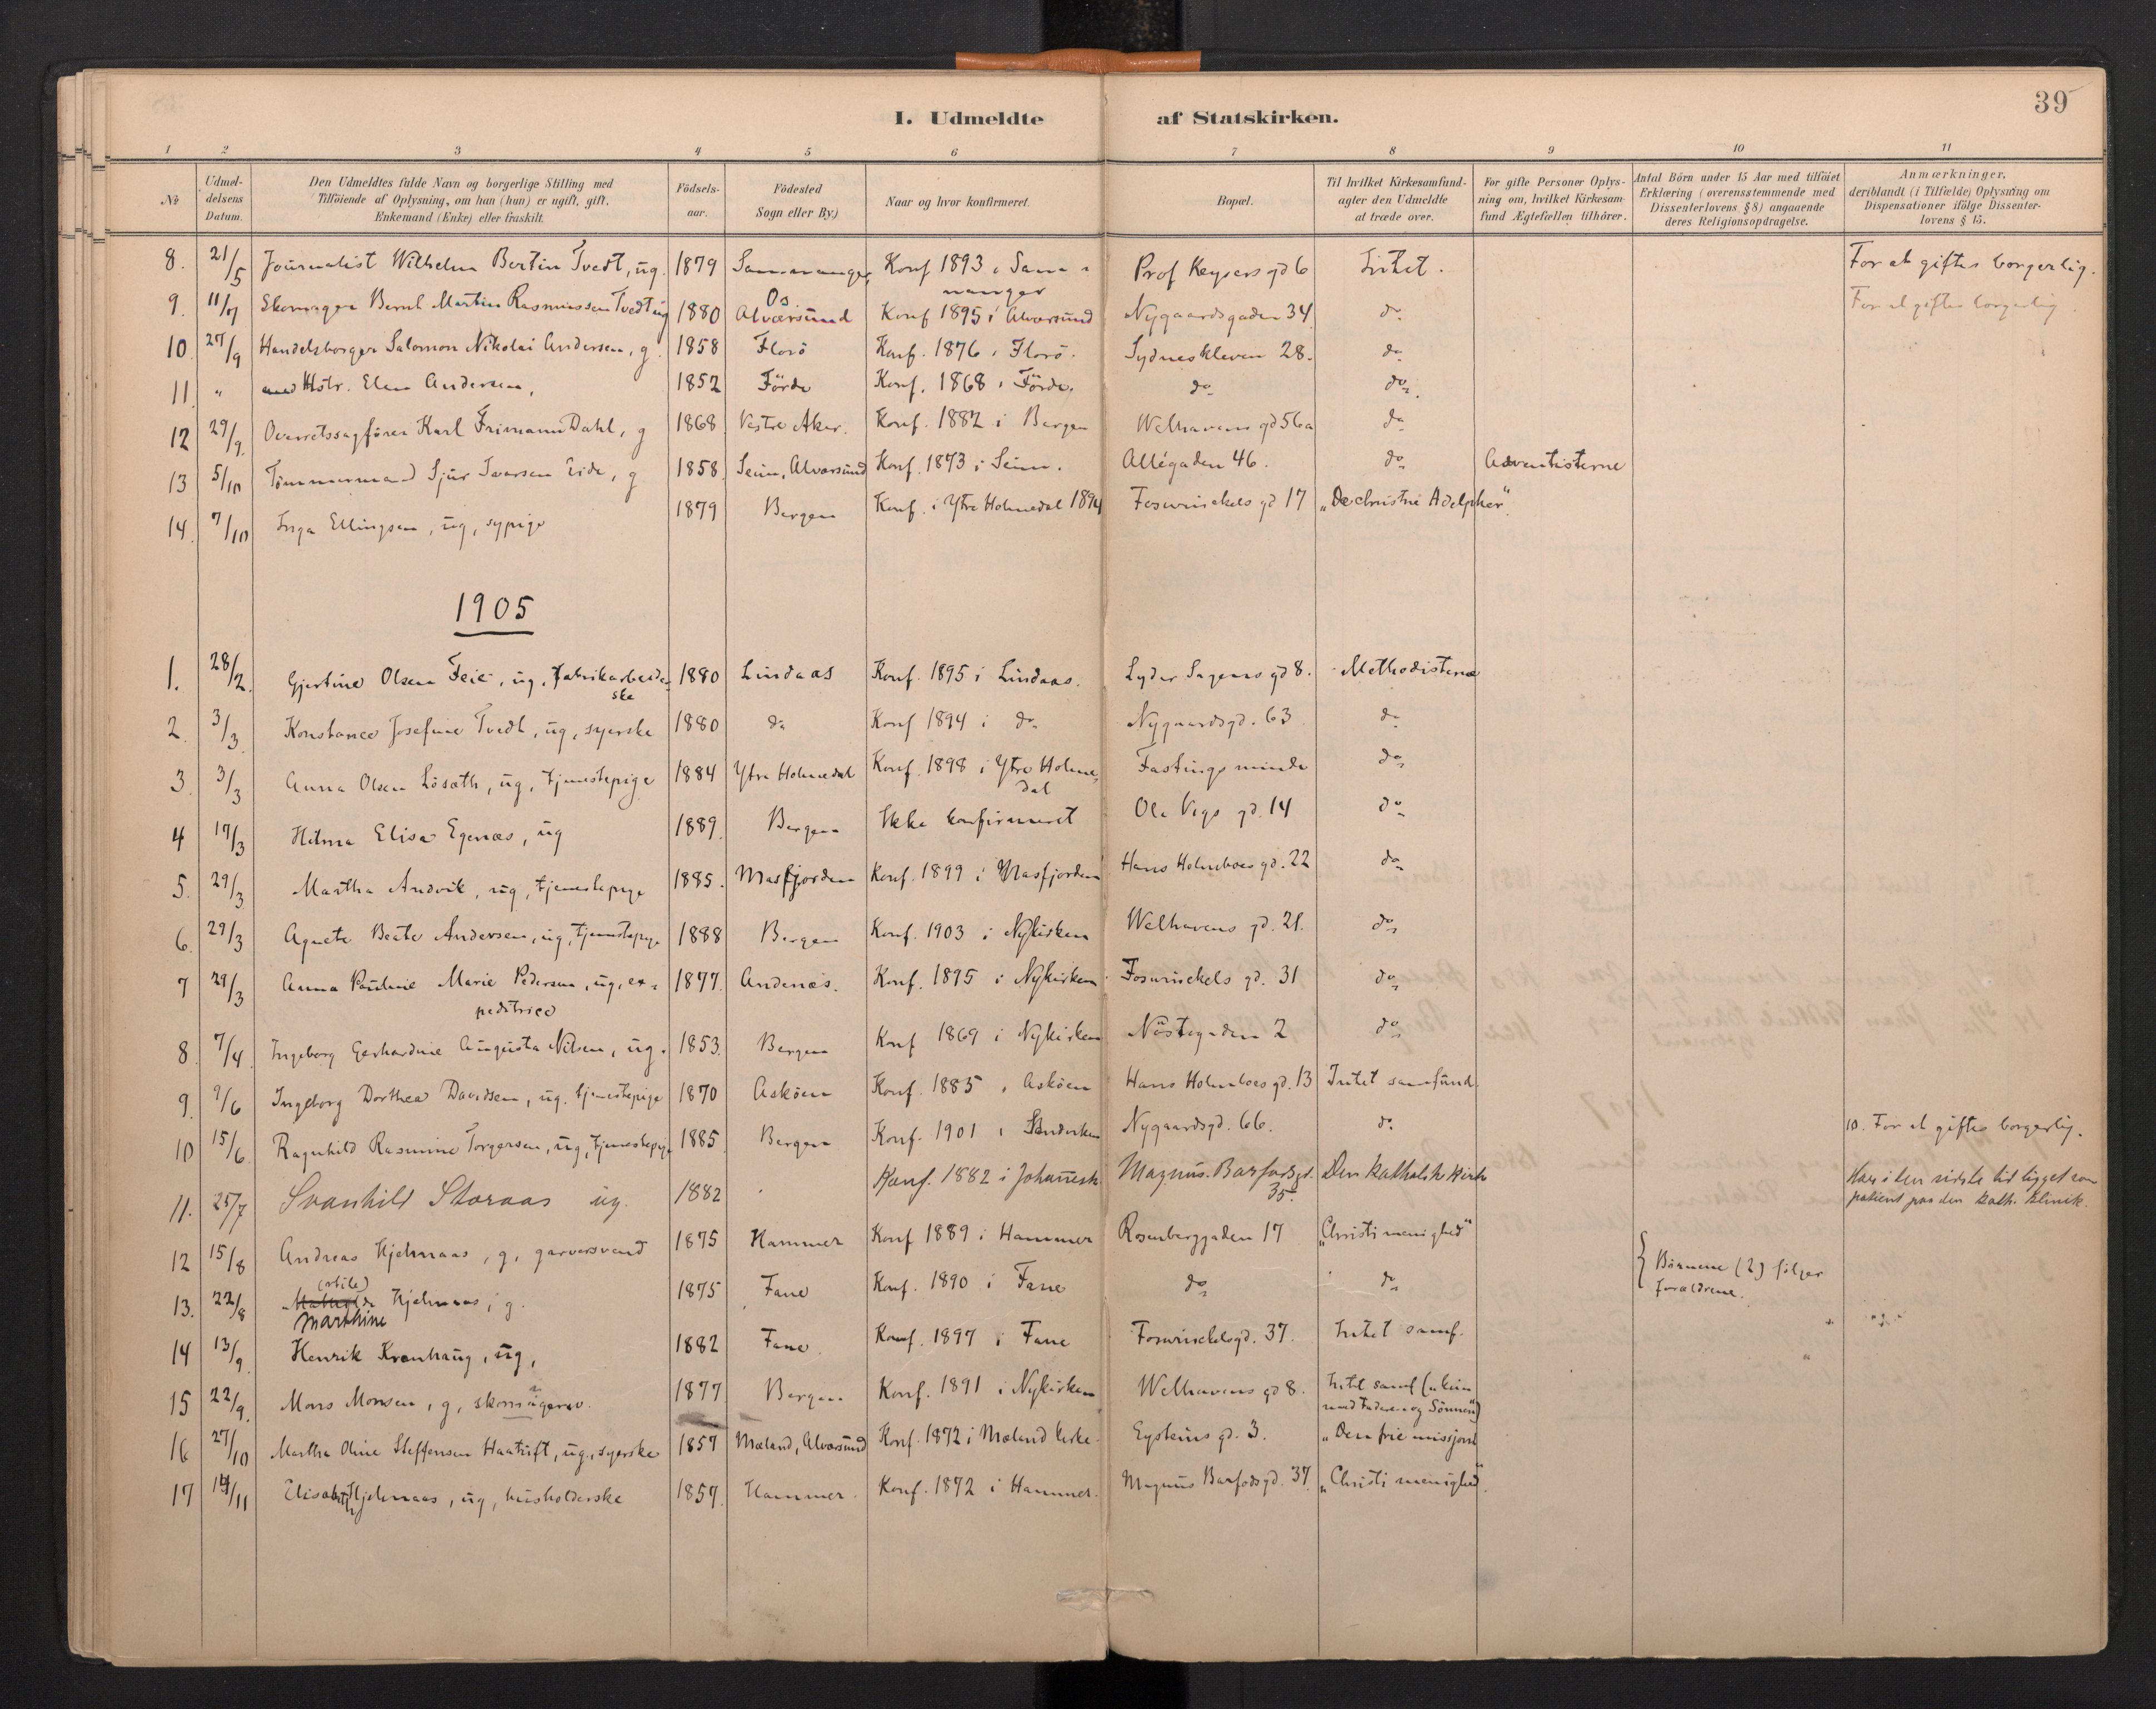 39
I. Udmeldte af Statskirken.
1 2 3 4 5 6 7 8 9 10 11
No
Udmel-
delsens
Datum.
Den Udmeldtes fulde Navn og borgerlige Stilling med
Tilföiende af Oplysning, om han (hun) er ugift, gift,
Enkemand (Enke) eller fraskilt.
Födsels-
aar.
Födested
Sogn eller By.)
Naar og hvor konfirmeret.
Bopæl.
Til hvilket Kirkesamfund
agter den Udmeldte
at træde over.
For gifte Personer Oplys-
ning om, hvilket Kirkesam-
fund Ægtefællen tilhörer.
Antal Börn under 15 Aar med tilföiet
Erklæring (overensstemmende med
Dissenterlovens § 8) angaaende
deres Religionsopdragelse.
Anmærkninger,
deriblandt (i Tilfælde) Oplysning om
Dispensationer ifölge Dissenter-
lovens § 15.
8. 21/5 Journalist Wilhelm Bertin Tvedt, ug. 1879 Sammanger Konf 1893 i Sam- Prof Keysers gd 6 Intet. For at giftes borgerlig.
nanger
9. 11/7 Skomager Bernt Martin Rasmussen Tvedt ug 1880 Alværsund Konf 1895 i Alværsund Nygaardsgaden 34 do For at giftes borgerlig
Os
10. 27/9 Handelsborger Salomon Nikolai Andersen, g. 1858 Florö Konf. 1876 i Florö. Sydneskleven 28. do
11. " Hstr. Elen Andersen, 1852 Förde Konf. 1868 i Förde. do do
12 29/9. Overretssagförer Karl Frimann Dahl, g 1868 Vestre Aker. Konf. 1882 i Bergen Welhavens gd 56a do
13 5/10 Tömmermand Sjur Ivarsen Eide, g 1858 Seim, Alværsund Konf. 1873 i Seim. Allégaden 46. do Adventisterne
14. 7/10 Inga Ellingsen, ug, sypige 1879 Bergen Konf. i Ytre Holmedal 1894 Foswinckels gd 17 „De christni Adelpher"
1905
1. 28/2. Gjertine Olsen Feie, ug, fabrikarbeider- 1880 Lindaas Konf. 1895 i Lindaas. Lyder Sagens gd 8. Methodisterne
ske
2. 3/3. Konstance Josefine Tvedt, ug, syerske 1880 do Konf 1894 i do Nygaardsgd. 63 do
3. 3/3 Anna Olsen Lösæth, ug, tjenestepige 1884 Ytre Holmedal Konf. 1898 i Ytre Holme- Fastings minde do
dal
4 17/3 Hilma Elisa Egenæs, ug 1889. Bergen Ikke konfirmeret Ole Vigs gd. 14 do
5. 29/3 Martha Andvik, ug, tjenestepige 1885. Masfjorden Konf. 1899 i Masfjorden Hans Holmboes gd. 22 do
6. 29/3 Agnete Beate Andersen, ug, tjenestepige 1888 Bergen Konf. 1903 i Nykirken Welhavens gd. 21. do
7 29/3 Anna Pauline Marie Pedersen, ug, ex- 1877. Andenæs. Konf. 1895 i Nykirken Foswinckels gd. 31 do
peditrice
8. 7/4 Ingeborg Gerhardine Augusta Nilsen, ug. 1853. Bergen Konf 1869 i Nykirken Nöstegaden 2 do
9. 9/6 Ingeborg Dorthea Davidsen, ug. tjenestepige 1870 Asköen Konf. 1885 i Asköen Hans Holmboes gd. 13 Intet samfund.
10 15/6 Ragnhild Rasmine Torgersen, ug, tjenestepige 1885 Bergen Konf. 1901 i Sandviken Nygaardsgd. 66. do 10. For at giftes borgerlig.
11. 25/7 Svanhild Storaas ug. 1882 Konf. 1882 i Johannesk Magnus Barfodsgd. Den katholske kirke Har i den sidste tid ligget som
35. patient paa den kath. klinik.
12 15/8 Andreas Hjelmaas, g, garversvend 1875 Hammer Konf 1889 i Hammer Rosenberggaden 17 „Christi menighed" Börnene (2) fölger
forældrene.
13. 22/8 Mathilde Hjelmaas, g. 1875 Fane Konf. 1890 i Fane do do
Marthine
14 13/9. Henrik Kronhaug, ug, 1882 Fane. Konf. 1897 i Fane Foswinckelsgd. 37. Intet samf.
15 22/9. Mons Monsen, g, skomager. 1877 Bergen Konf. 1891 i Nykirken Welhavens gd 8. Intet samf („kun
med Faderen og Sönnen")
16 27/10 Martha Oline Steffensen Haatuft, ug., syerske 1857 Mæland, Alværsund Konf. 1872 i Mæland kirke. Eysteins gd. 3. „Den frie missjon"
17 14/11 Elisabeth Hjelmaas, ug, husholderske 1857. Hammer. Konf. 1872 i Hammer. Magnus Barfodsgd. 37. „Christi menighed".